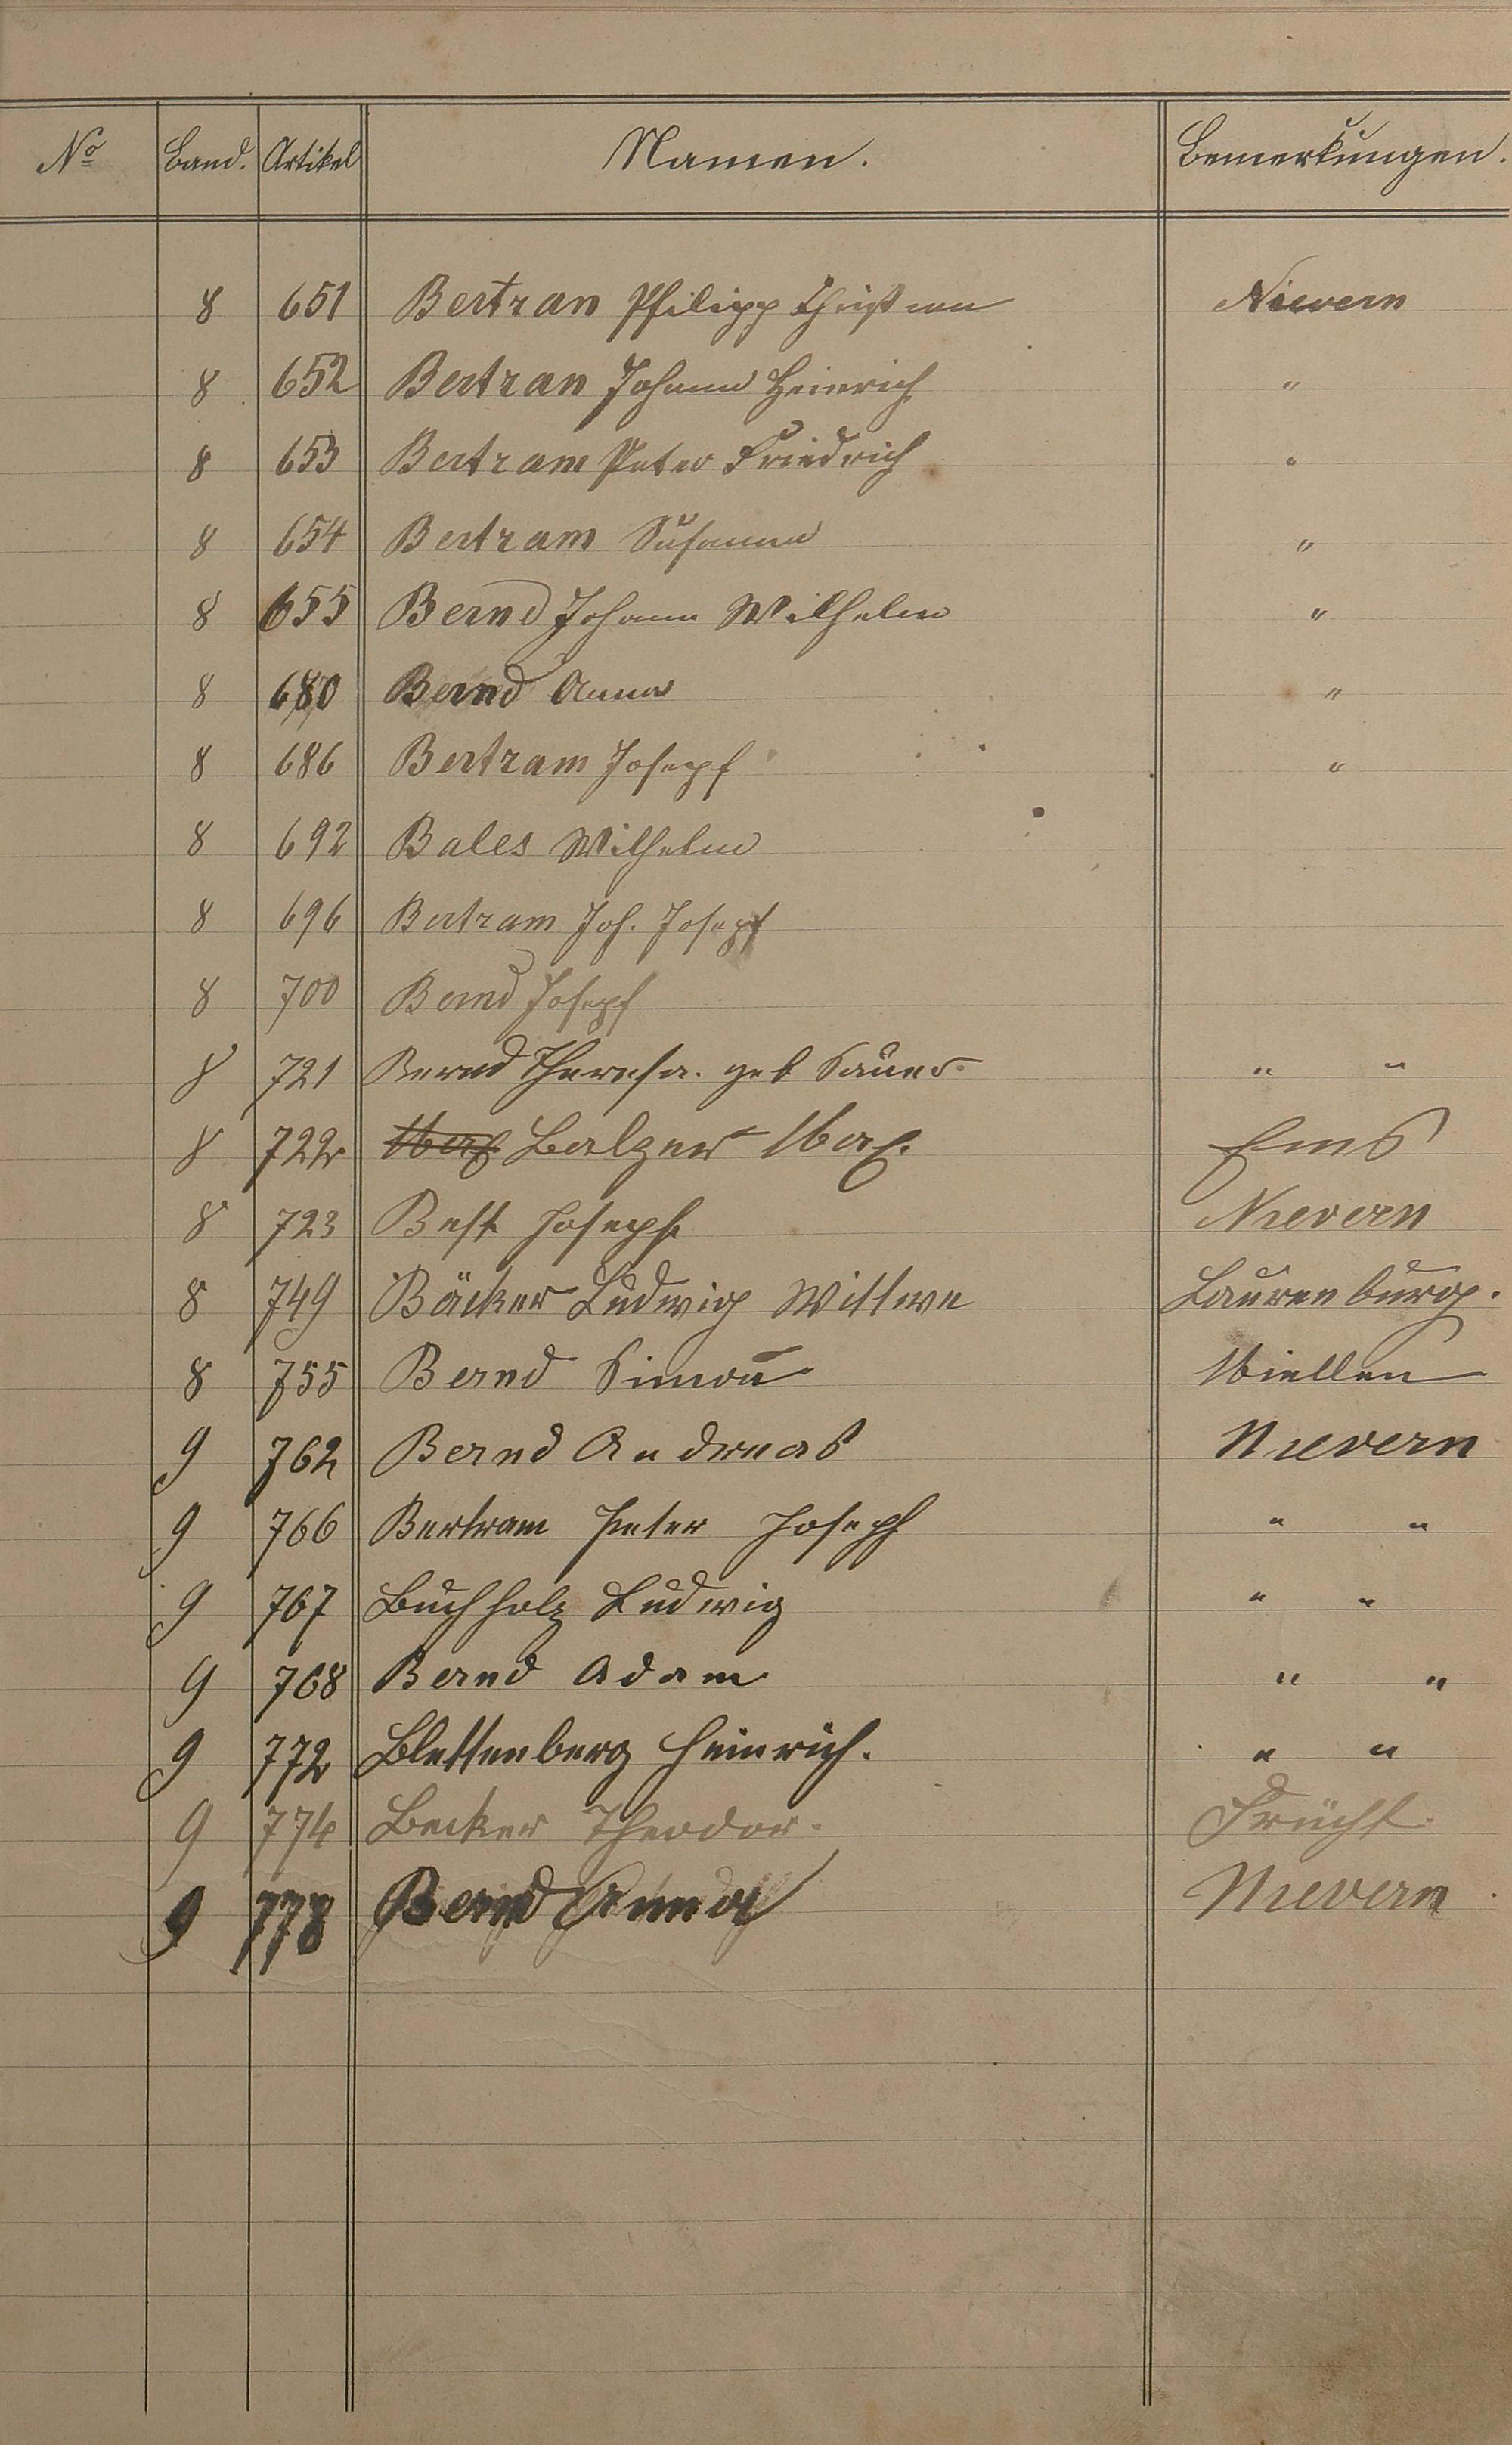 No Band. Artikel Namen. Bemerkungen.
8 651 Bertran Philipp Nievern
8 652 Bertran Johann Heinrich "
8 653 Bertram Peter Friedrich "
8 654 Bertram Susanna "
8 655 Bernd Johann Wilhelm "
8 680 Bernd Anna "
8 686 Bertram Joseph "
8 692 Bales Wilhelm
8 696 Bertram Joh. Joseph
8 700 Bernd Joseph
8 721 Bernd Theresa. geb Sauer. " "
8 722 Max Balzer Max. Ems
8 723 Best Joseph Nievern
8 749 Bäcker Ludwig Wittwe Laurenburg.
8 755 Bernd Simon Miellen
9 762 Bernd Andreas Nievern
9 766 Bertram Peter Joseph " "
9 767 Buchholz Ludwig " "
9 768 Bernd Adam " "
9 772 Blettenberg Heinrich. " "
9 774 Becker Theodor. Frücht
9 778 Bernd Anna Nievern